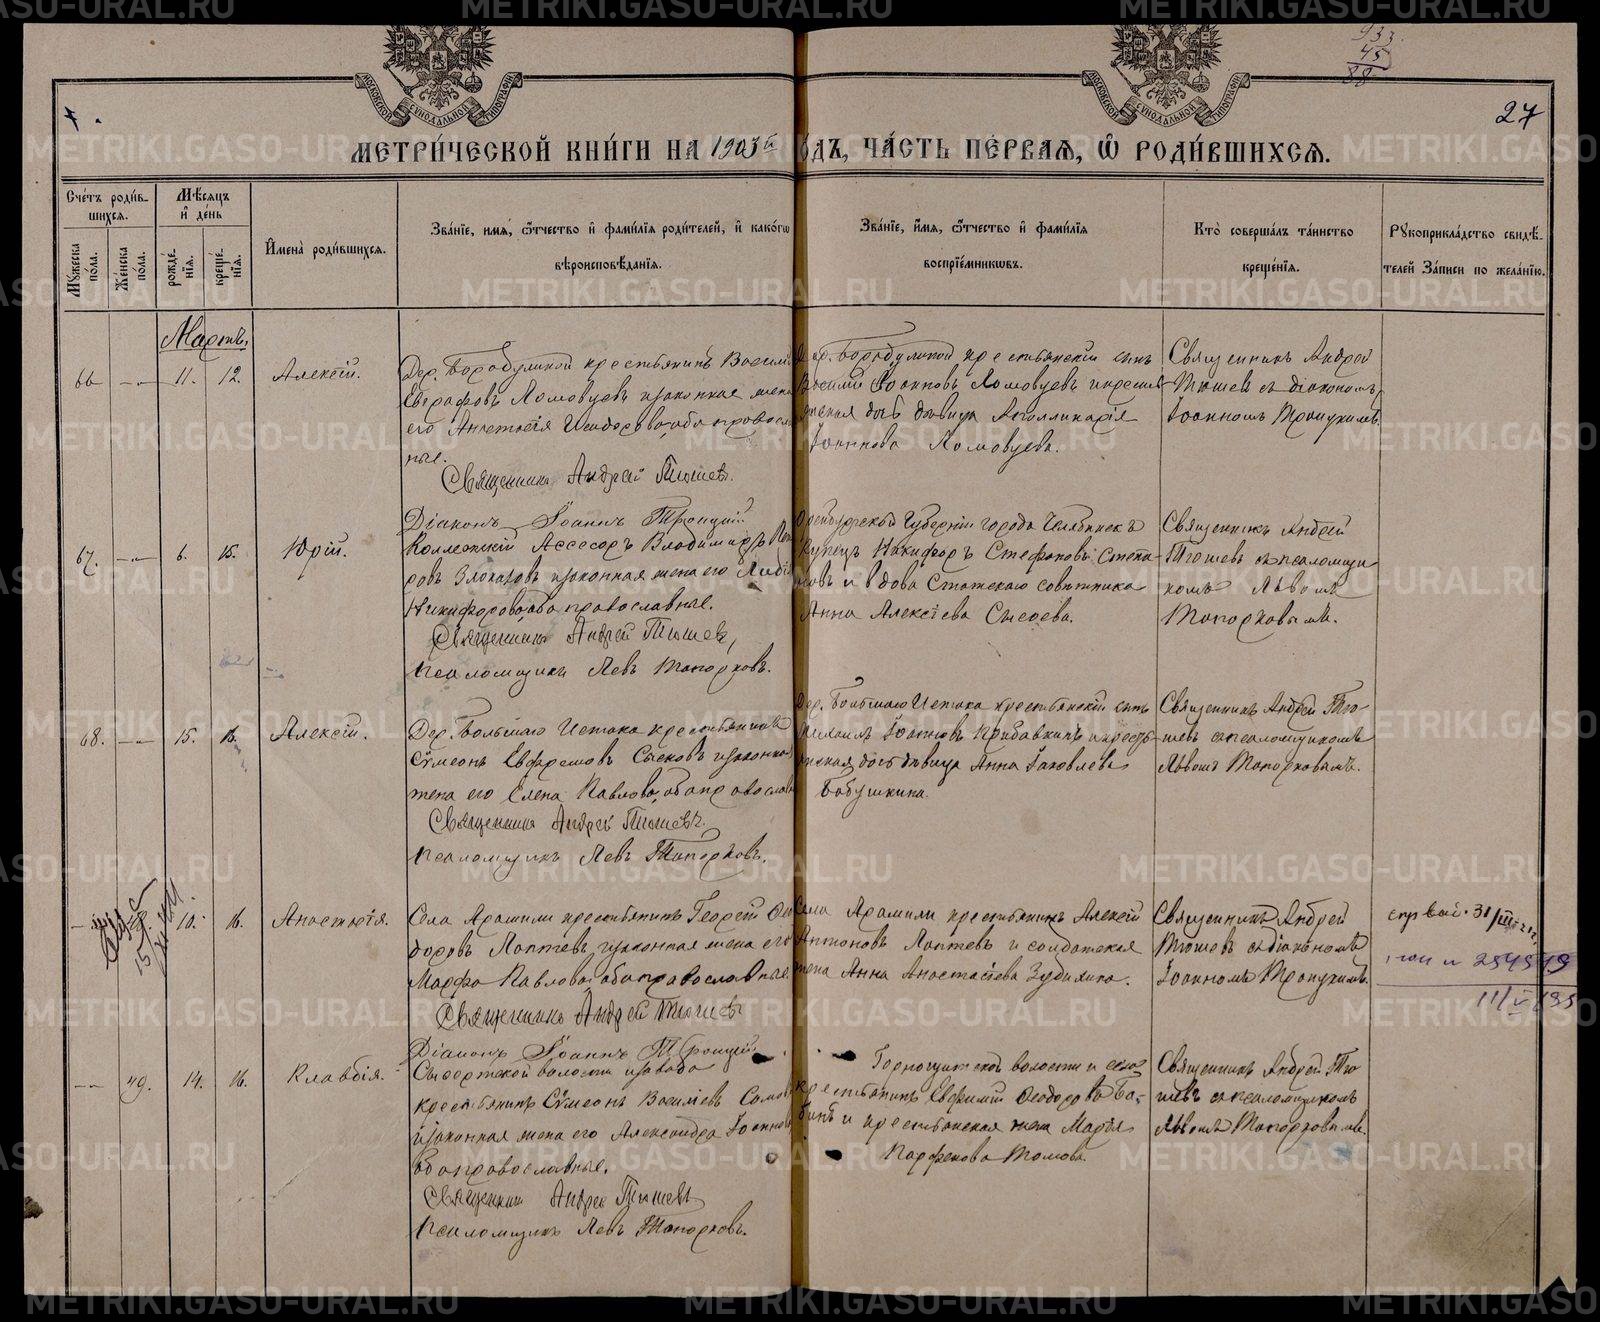 933.
45
88
27
МЕТРИ́ЧЕСКОЙ КНИ́ГИ НА 1903й ГОДЪ, ЧА́СТЬ ПЕ́РВАЯ, Ѿ РОДИ́ВШИХСЯ.
МОСКОВСКОЙ СѴНОДАЛЬНОЙ ТИПОГРАФІИ
МОСКОВСКОЙ СѴНОДАЛЬНОЙ ТИПОГРАФІИ
Сче́тъ роди́вшихся.
Му́жеска по́ла.
Же́нска по́ла.
Мѣ́сяцъ и де́нь
рожде́нія.
креще́нія.
Имена̀ роди́вшихся.
Зва́ніе, имя, ѻтчество и фами́лія роди́телей, и како́гѡ вѣроисповѣ́данія.
Зва́ніе, имя, ѻтчество и фами́лія воспріе́мникѡвъ.
Кто̀ соверша́лъ та́инство креще́нія.
Рукоприкла́дство свидѣ́телей за́писи по жела́нію.
Мартъ.
66 11. 12. Алексій.
Дер. Бородулиной крестьянинъ Васил
Евграфовъ Ломовцевъ и законная жена
его Анастасія Исидорова, оба православ
ные.
Священникъ Андрей Тюшевъ.
Діаконъ Іоаннъ Троицкій
Дер. Бородулиной крестьянскій сынъ
Василій Іоанновъ Ломовцевъ и кресть
янская дочь дѣвица Аполлинарія
Іоаннова Ломовцева.
Священникъ Андрей
Тюшевъ съ діакономъ
Іоанномъ Троицкимъ.
67. 6. 15. Юрій.
Коллежскій Ассесоръ Владимиръ
ровъ Злоказовъ и законная жена его Лидія
Никифорова, оба православные.
Священникъ Андрей Тюшевъ,
Псаломщикъ Левъ Топорковъ.
Оренбургской Губерніи города Челябинска
Купецъ Никифоръ Стефановъ Степа
новъ и вдова Статскаго совѣтника
Анна Алексіева Сысоева.
Священникъ Андрей
Тюшевъ съ псаломщи
комъ Львомъ
Топорковымъ.
68. 15. 16. Алексій.
Дер. Большаго Истока крестьянинъ
Сѵмеонъ Евфремовъ Сысковъ и законная
жена его Елена Павлова, оба православ
Священникъ Андрей Тюшевъ.
Псаломщикъ Левъ Топорковъ.
Дер. Большаго Истока крестьянскій сынъ
Михаилъ Іоанновъ и кресть
янская дочь дѣвица Анна Іаковлева
Бабушкина.
Священникъ Андрей Тю-
шевъ съ псаломщикомъ
Львомъ Топорковымъ.
10. 16. Анастасія.
Села Арамили крестьянинъ Георгій Ѳе
доровъ Лаптевъ, и законная жена его
Марфа Павлова, оба православные.
Священникъ Андрей Тюшевъ
Діаконъ Іоаннъ Троицкій
Села Арамили крестьянинъ Алексій
Антоновъ Лаптевъ и солдатская
жена Анна Анастасіева Зубилина.
Священникъ Андрей
Тюшевъ съ діакономъ
Іоанномъ Троицкимъ.
49. 14. 16. Клавдія.
Сысертской волости и завода
крестьянинъ Сѵмеонъ Василіевъ
и законная жена его Александра Іоаннова
оба православные.
Священникъ Андрей Тюшевъ
Псаломщикъ Левъ Топорковъ.
Горнощитской волости и села
крестьянинъ Евфимій Ѳеодоровъ Ба-
бинъ и крестьянская жена Марія
Парфенова Томова.
Священникъ Андрей Тю
шевъ съ псаломщикомъ
Львомъ Топорковымъ.
METRIKI.GASO-URAL.RU